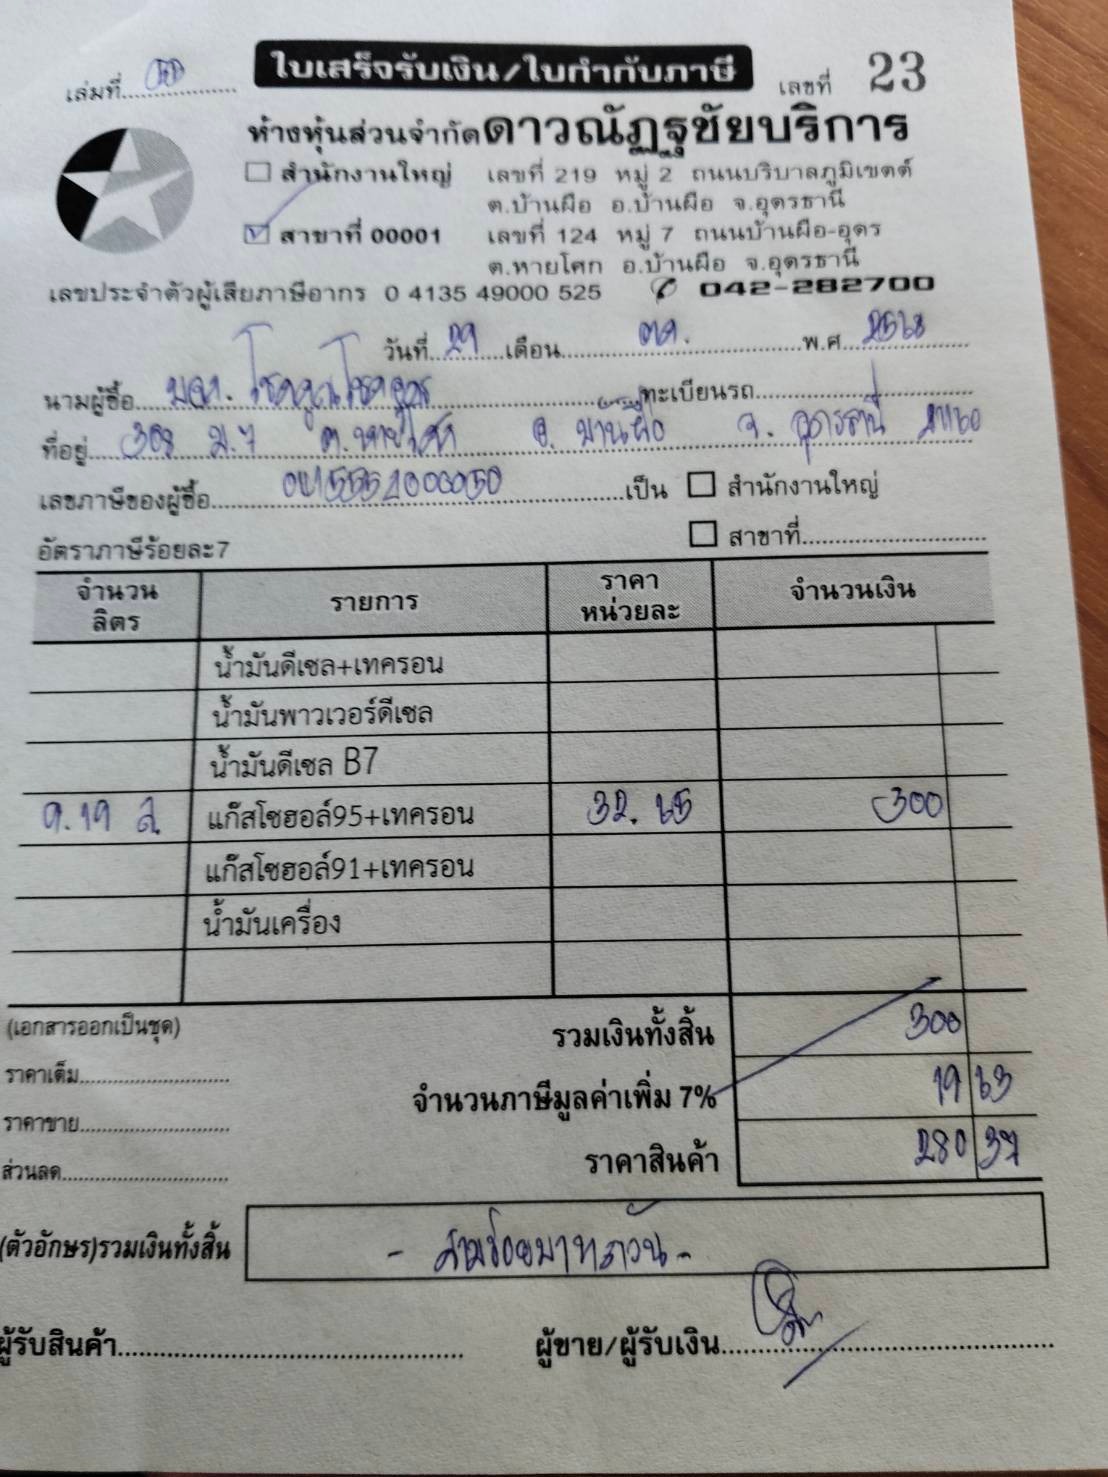 ใบเสร็จรับเงิน/ใบกำกับภาษี
เล่มที่ เลขที่ 23
ห้างหุ้นส่วนจำกัดดาวณัฏฐชัยบริการ
สำนักงานใหญ่ เลขที่ 219 หมู่ 2 ถนนบริบาลภูมิเขตต์
ต.บ้านผือ อ.บ้านผือ จ.อุดรธานี
สาขาที่ 00001 เลขที่ 124 หมู่ 7 ถนนบ้านผือ-อุดร
ต.หายโศก อ.บ้านผือ จ.อุดรธานี
เลขประจำตัวผู้เสียภาษีอากร 0 4135 49000 525 ✆ 042-282700
วันที่ 29 เดือน ตค. พ.ศ 2568
นามผู้ซื้อ ทะเบียนรถ
ที่อยู่ 308 ม.7 ต.หายโศก อ.บ้านผือ จ.อุดรธานี 41160
เลขภาษีของผู้ซื้อ เป็น สำนักงานใหญ่
อัตราภาษีร้อยละ7 สาขาที่
จำนวนลิตร รายการ ราคาหน่วยละ จำนวนเงิน
น้ำมันดีเซล+เทครอน
น้ำมันพาวเวอร์ดีเซล
น้ำมันดีเซล B7
9.19 ล. แก๊สโซฮอล์95+เทครอน 32.65 300
แก๊สโซฮอล์91+เทครอน
น้ำมันเครื่อง
(เอกสารออกเป็นชุด) รวมเงินทั้งสิ้น 300
ราคาเต็ม จำนวนภาษีมูลค่าเพิ่ม 7% 19 63
ราคาขาย
ส่วนลด ราคาสินค้า 280 37
(ตัวอักษร)รวมเงินทั้งสิ้น - สามร้อยบาทถ้วน -
ผู้รับสินค้า ผู้ขาย/ผู้รับเงิน